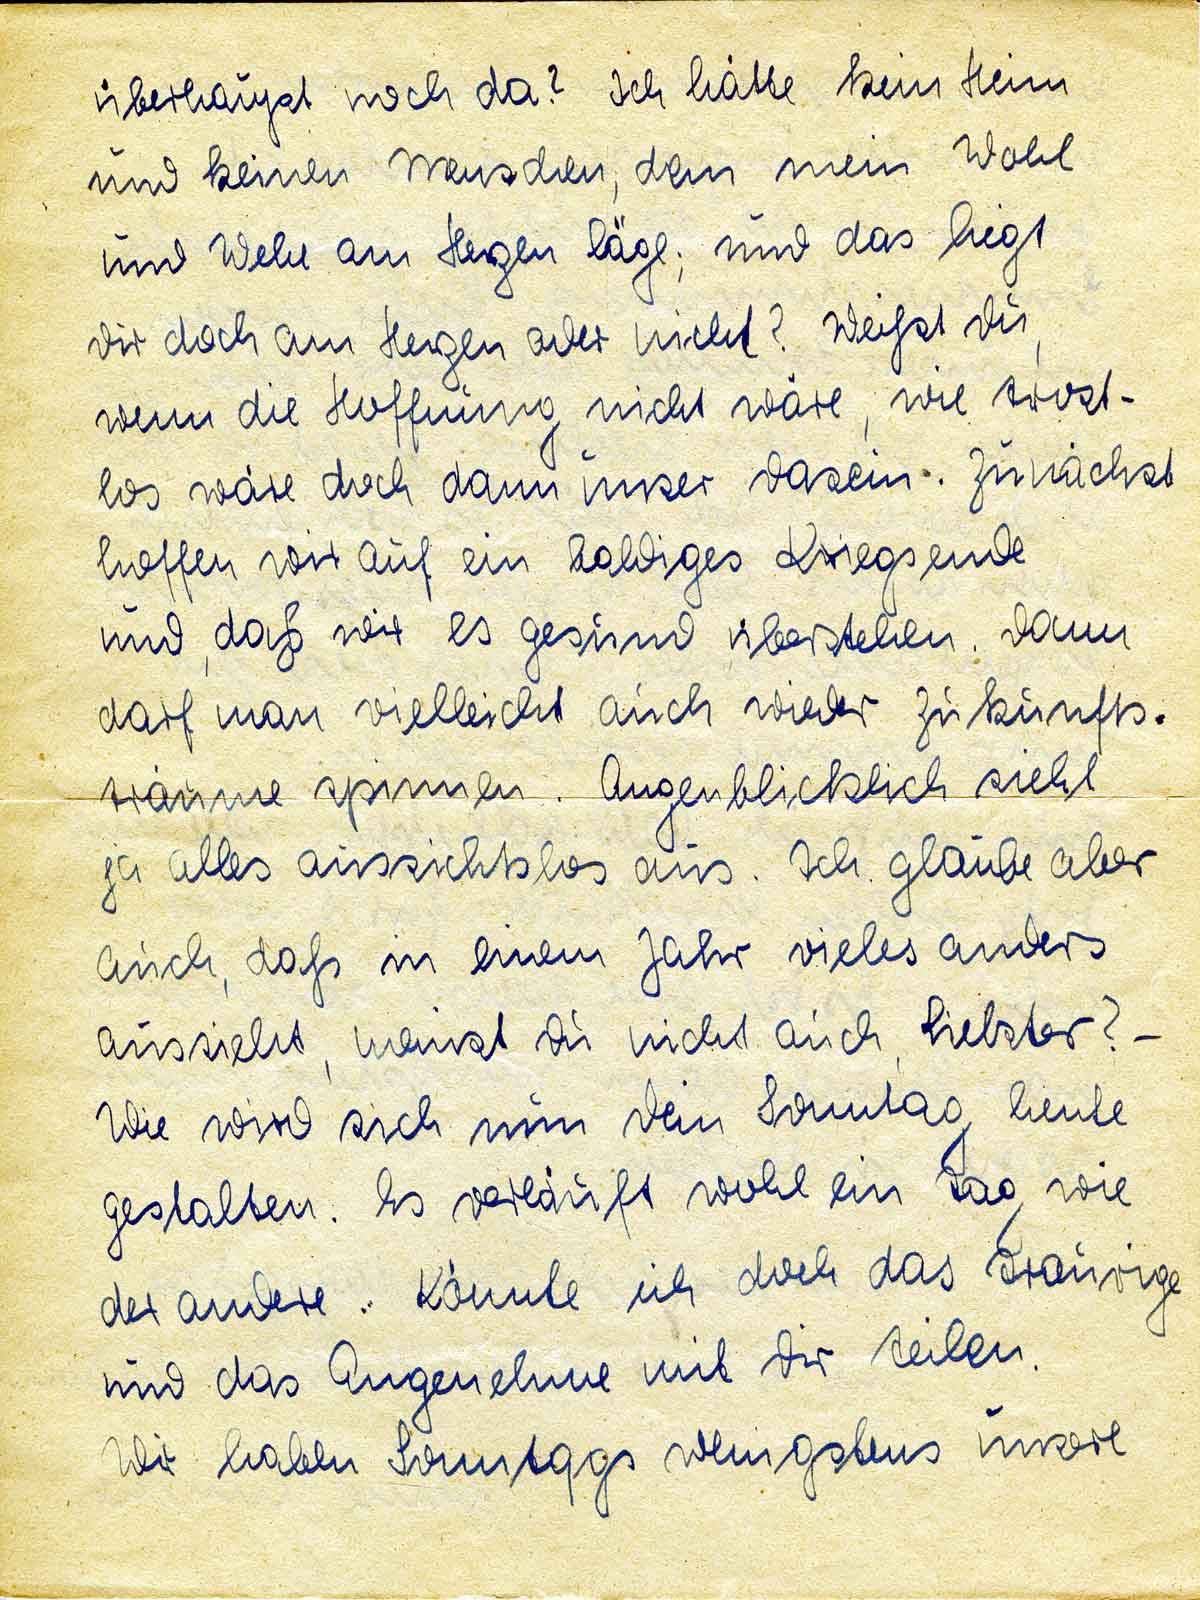 überhaupt noch da? Ich hätte kein Heim
und keinen Menschen, dem mein Wohl
und Wehe am Herzen läge; und das liegt
Dir doch am Herzen oder nicht? Weißt Du,
wenn die Hoffnung nicht wäre, wie trost-
los wäre doch dann unser Dasein. Zunächst
hoffen wir auf ein baldiges Kriegsende
und, daß wir es gesund überstehen. Dann
darf man vielleicht auch wieder Zukunfts-
träume spinnen. Augenblicklich sieht
ja alles aussichtslos aus. Ich glaube aber
auch, daß in einem Jahr vieles anders
aussieht, meinst Du nicht auch, Liebster? –
Wie wird sich nun Dein Sonntag heute
gestalten. Es verläuft wohl ein Tag wie
der andere. Könnte ich doch das Traurige
und das Angenehme mit Dir teilen.
Wir haben Sonntags wenigstens unsere